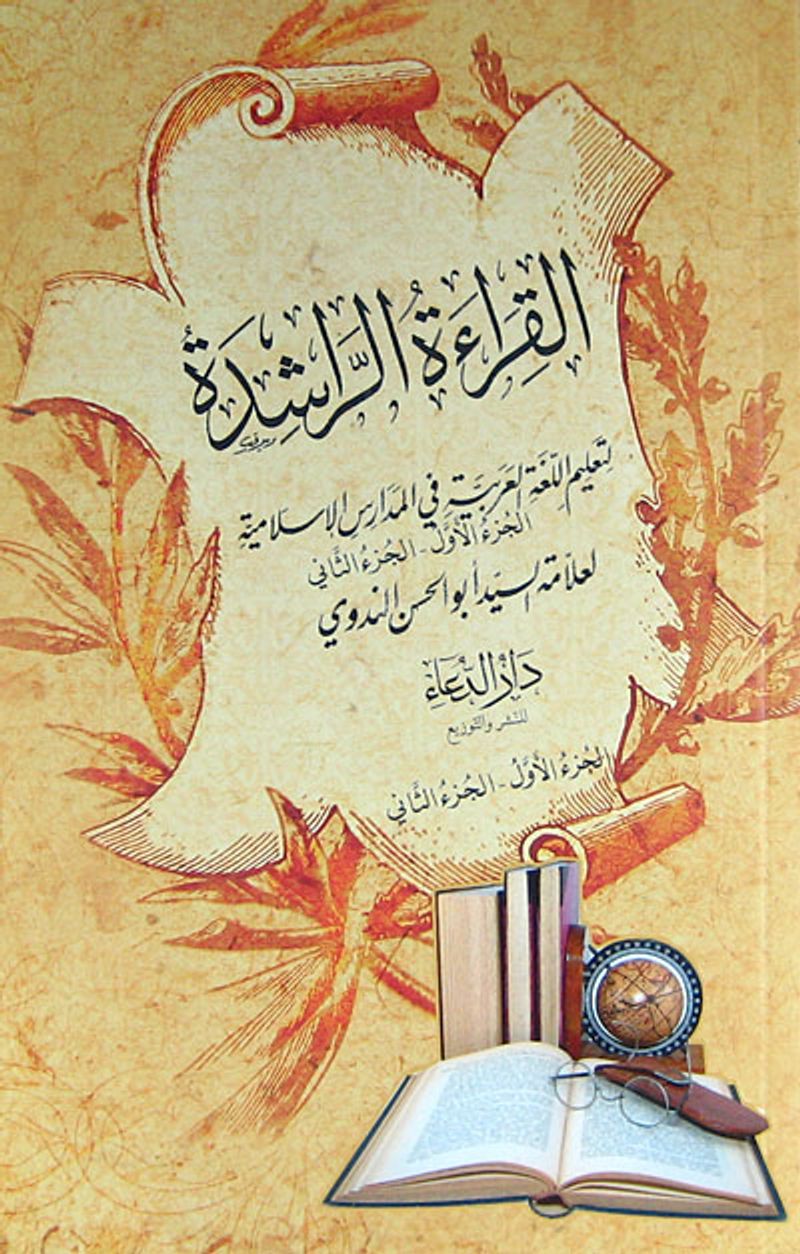 القِرَاءَةُ الرَّاشِدَةُ
لتَعليم اللّغَةِ العَرَبيَّةِ في المَدَارسِ الإسلاميّةِ
الجُزءُ الأوَّل - الجُزءُ الثَّاني
لعلّامة السيّد أبو الحسن الندوي
دَارُ الدُّعَاءِ
للنشر والتوزيع
الجُزءُ الأَوَّلُ - الجُزءُ الثَّاني